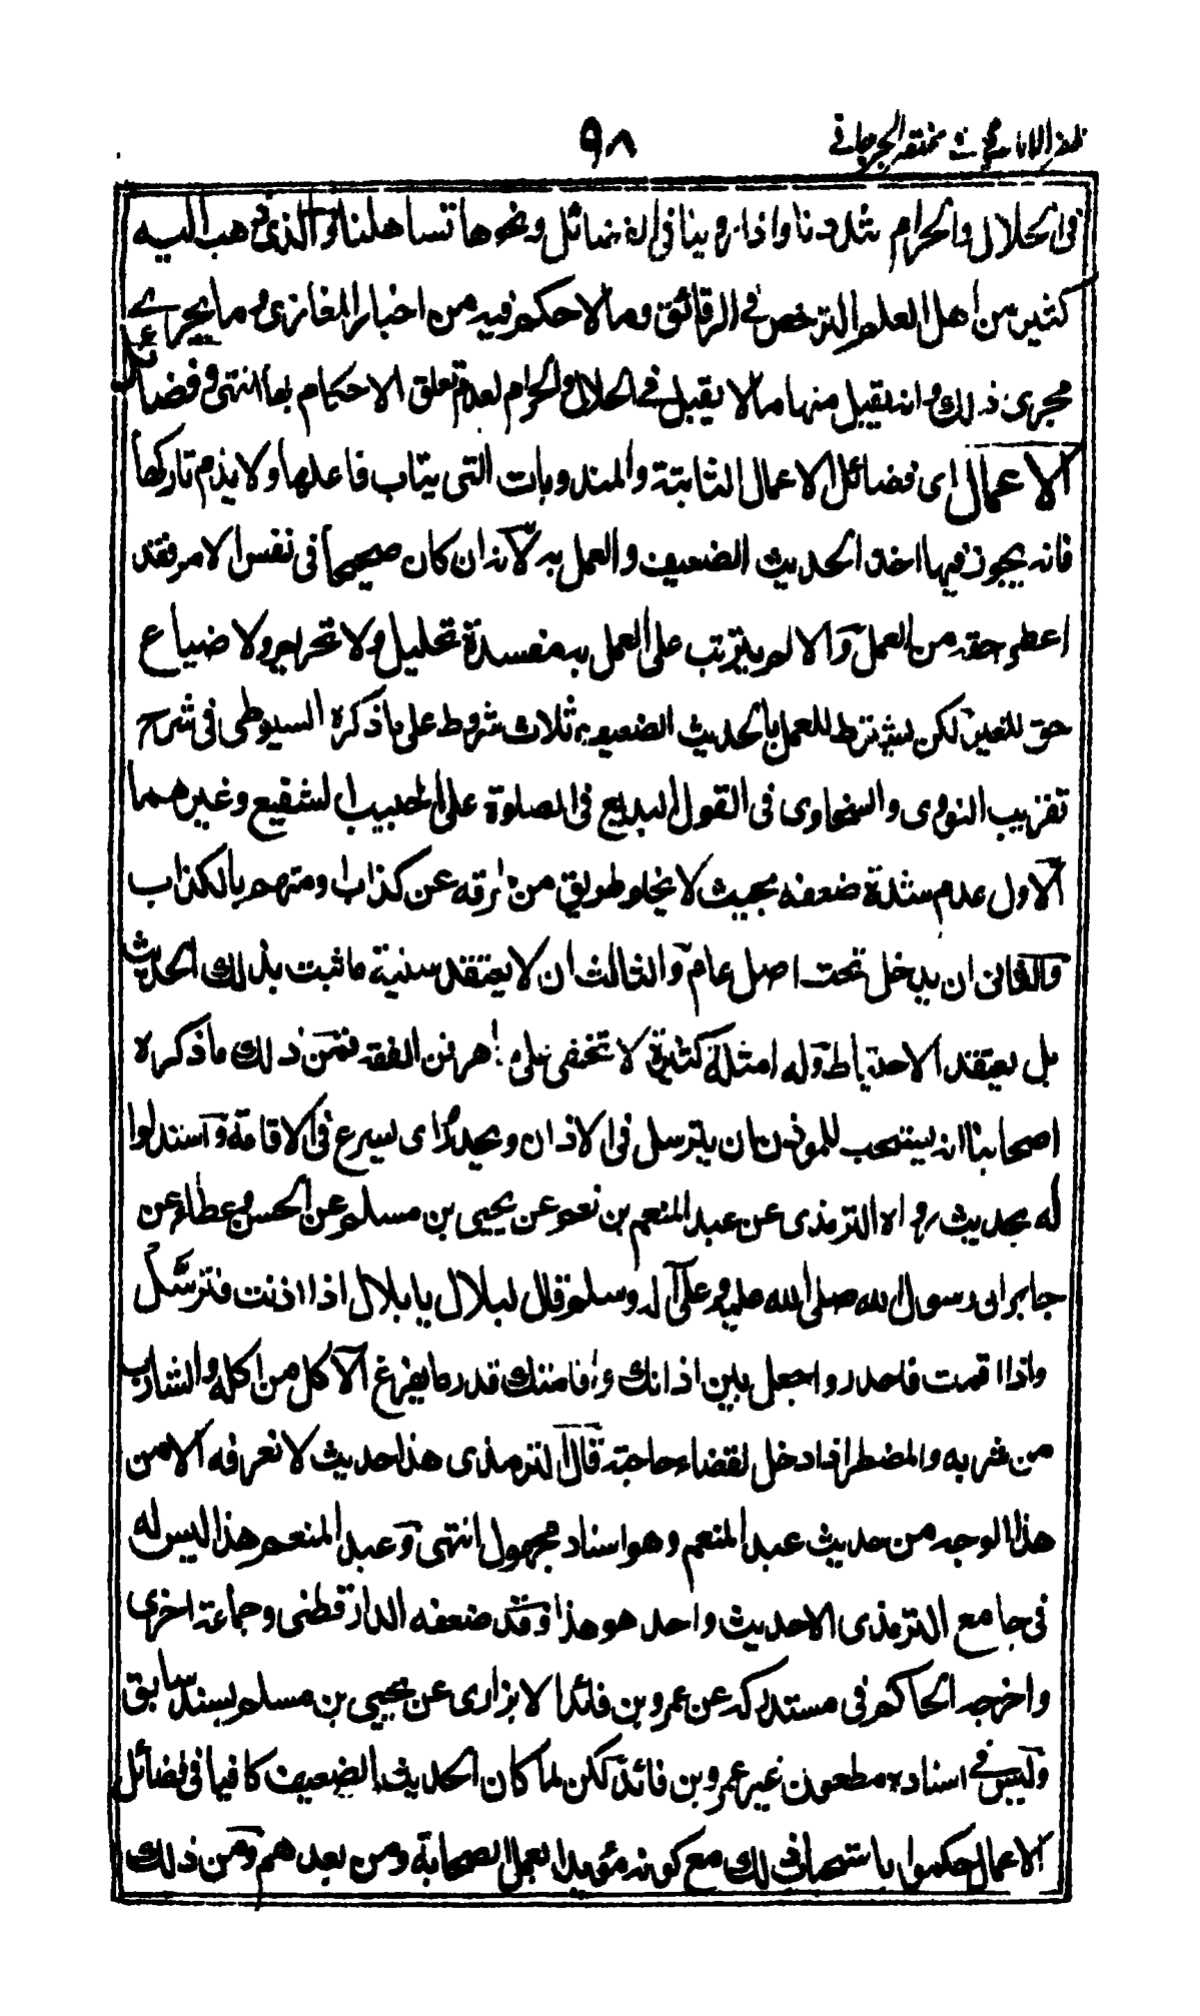 ظفر الاماني في مختصر الجرجاني
٩٨
في الحلال والحرام شددنا واذا روينا في الفضائل ونحوها تساهلنا والذي ذهب اليه
كثير من اهل العلم الترخص في الرقائق وما لا حكم فيه من اخبار المغازي وما يجرى
مجرى ذلك وانه يقبل منها ما لا يقبل في الحلال والحرام لعدم تعلق الاحكام بها انتهى وفضائل
الاعمال اى فضائل الاعمال الثابتة والمندوبات التى يثاب فاعلها ولا يذم تاركها
فانه يجوز فيها اخذ الحديث الضعيف والعمل به لانه ان كان صحيحا فى نفس الامر فقد
اعطى حقه من العمل والا لم يترتب على العمل به مفسدة تحليل ولا تحريم ولا ضياع
حق للغير لكن يشترط للعمل بالحديث الضعيف ثلاث شروط على ما ذكره السيوطى فى شرح
تقريب النووى والسخاوى فى القول البديع فى الصلوة على الحبيب الشفيع وغيرهما
الاول عدم شدة ضعفه بحيث لا يخلو طريق من طرقه عن كذاب او متهم بالكذاب
والثانى ان يدخل تحت اصل عام والثالث ان لا يعتقد سنية ما ثبت بذلك الحديث
بل يعتقد الاحتياط وله امثلة كثيرة لا تخفى على ماهر فن الفقه فمن ذلك ما ذكره
اصحابنا انه يستحب للموذن ان يترسل فى الاذان ويحدر اى يسرع فى الاقامة واستدلوا
له بحديث رواه الترمذى عن عبد المنعم بن نعيم عن يحيى بن مسلم عن الحسن وعطاء عن
جابر ان رسول الله صلى الله عليه وعلى آله وسلم قال لبلال يا بلال اذا اذنت فترسل
واذا اقمت فاحدر واجعل بين اذانك واقامتك قدر ما يفرغ الآكل من اكله والشارب
من شربه والمضطر اذا دخل لقضاء حاجته قال الترمذى هذا حديث لا نعرفه الا من
هذا الوجه من حديث عبد المنعم وهو اسناد مجهول انتهى وعبد المنعم هذا ليس له
فى جامع الترمذى الا حديث واحد هو هذا وقد ضعفه الدارقطنى وجماعة اخرى
واخرجه الحاكم فى مستدركه عن عمرو بن فائد الابزارى عن يحيى بن مسلم بسند سابق
وليس فى اسناده مطعون غير عمرو بن فائد لكن لما كان الحديث الضعيف كافيا فى فضائل
الاعمال حكموا باستحباب ذلك مع كونه مؤيدا بعمل الصحابة ومن بعدهم ومن ذلك